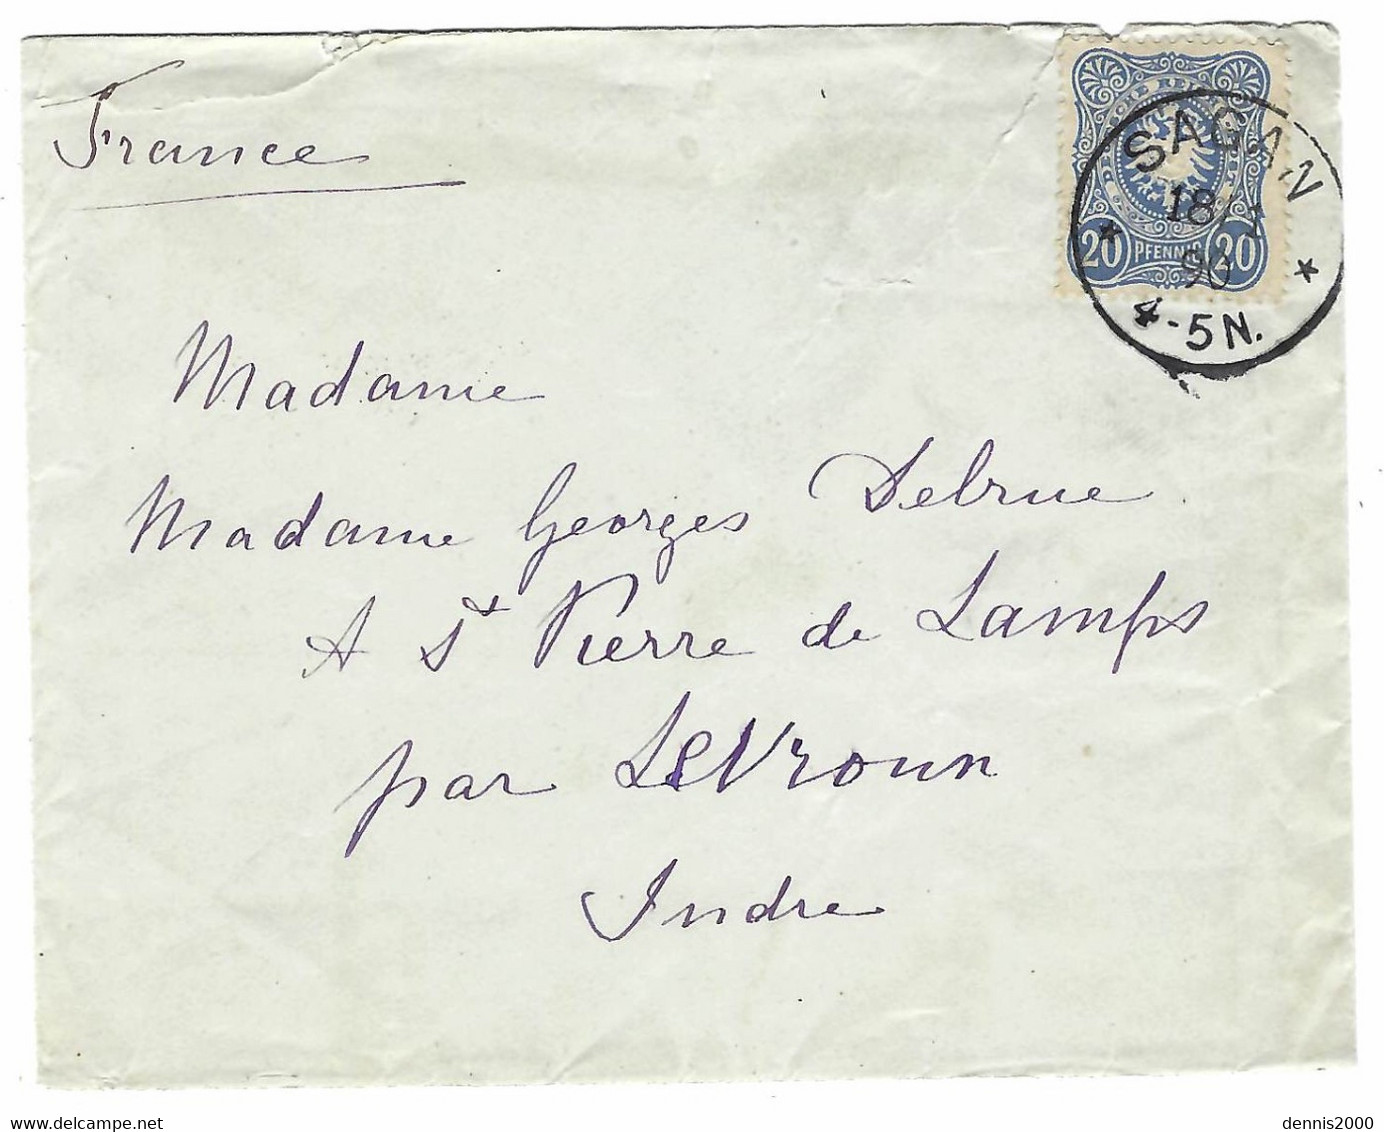 France
DEUTSCHE REICHS
20 PFENNIG 20
SAGAN
18/1
90
* *
4-5N.
Madame
Madame Georges Delrue
A St Pierre de Lamps
par Levroux
Indre
delcampe.net
dennis2000